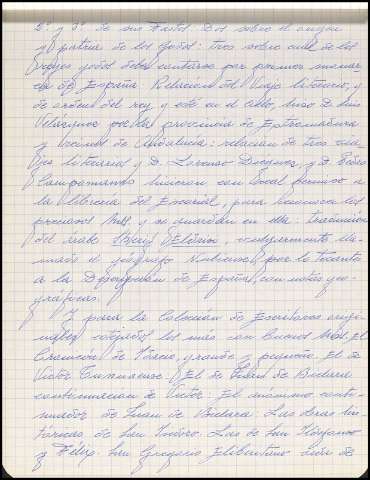 2º. y 3º. de sus Fastos. Dos sobre el origen
y patria de los godos: tres sobre cual de los
Reyes godos debe contarse por primer monar-
ca de España. Relación del Viaje literario, y
de orden del rey y este en el año, hizo D. Luis
Velázquez por la provincia de Extremadura
y Reinos de Andalucía: relación de tres via-
jes literarios q. D. Lorenzo Dieguez, y D. Pedro
Campomanes hicieron con Real permiso a
la librería del Escorial, para reconocer los
preciosos Mss. q. se guardan en ella: traducción
del árabe Xerif Eledrisi, vulgarmente lla-
mado el geógrafo Nubiense, por lo tocante
a la Descripción de España, con notas geo-
gráficas.
Y para la Colección de Escritores origi-
nales, cotejados los más con buenos Mss. El
Cronicón de Idacio, grande y pequeño. El de
Victor Tunnense. El de Juan de Biclara
continuación de Victor. El anónimo conti-
nuador de Juan de Biclara. Las obras his-
tóricas de San Isidoro. Las de San Ildefonso
y Félix. San Gregorio Eliberitano